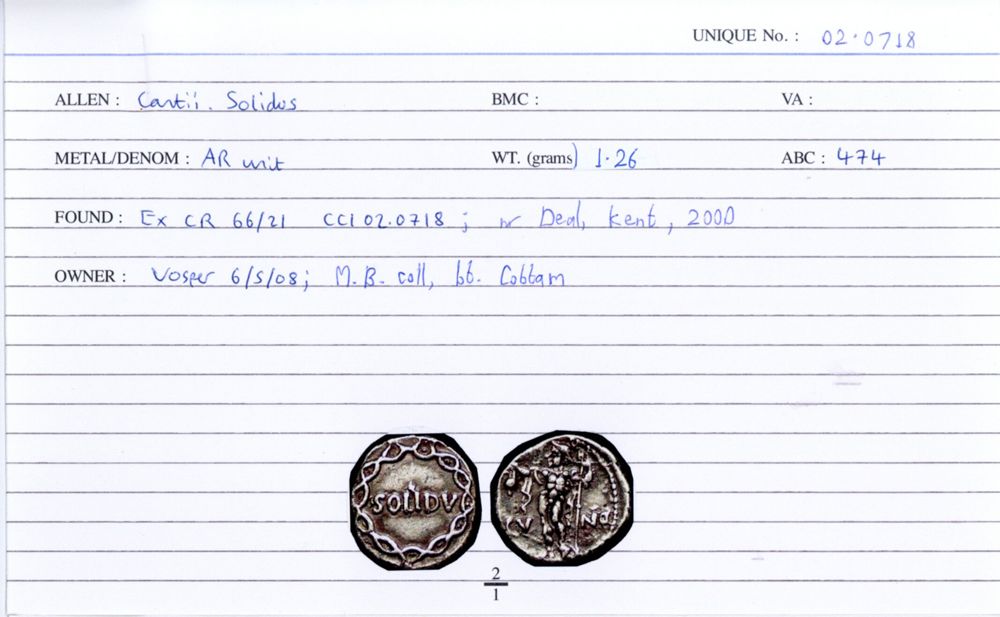 UNIQUE No. : 02.0718
ALLEN : Cantii. Solidus BMC : VA :
METAL/DENOM : AR unit WT. (grams) 1.26 ABC : 474
FOUND : Ex CR 66/21 CCI 02.0718 ; nr Deal, Kent, 2000
OWNER : Vosper 6/5/08; M.B. coll, bt. Cottam
SOLIDV
CV NO
2
1